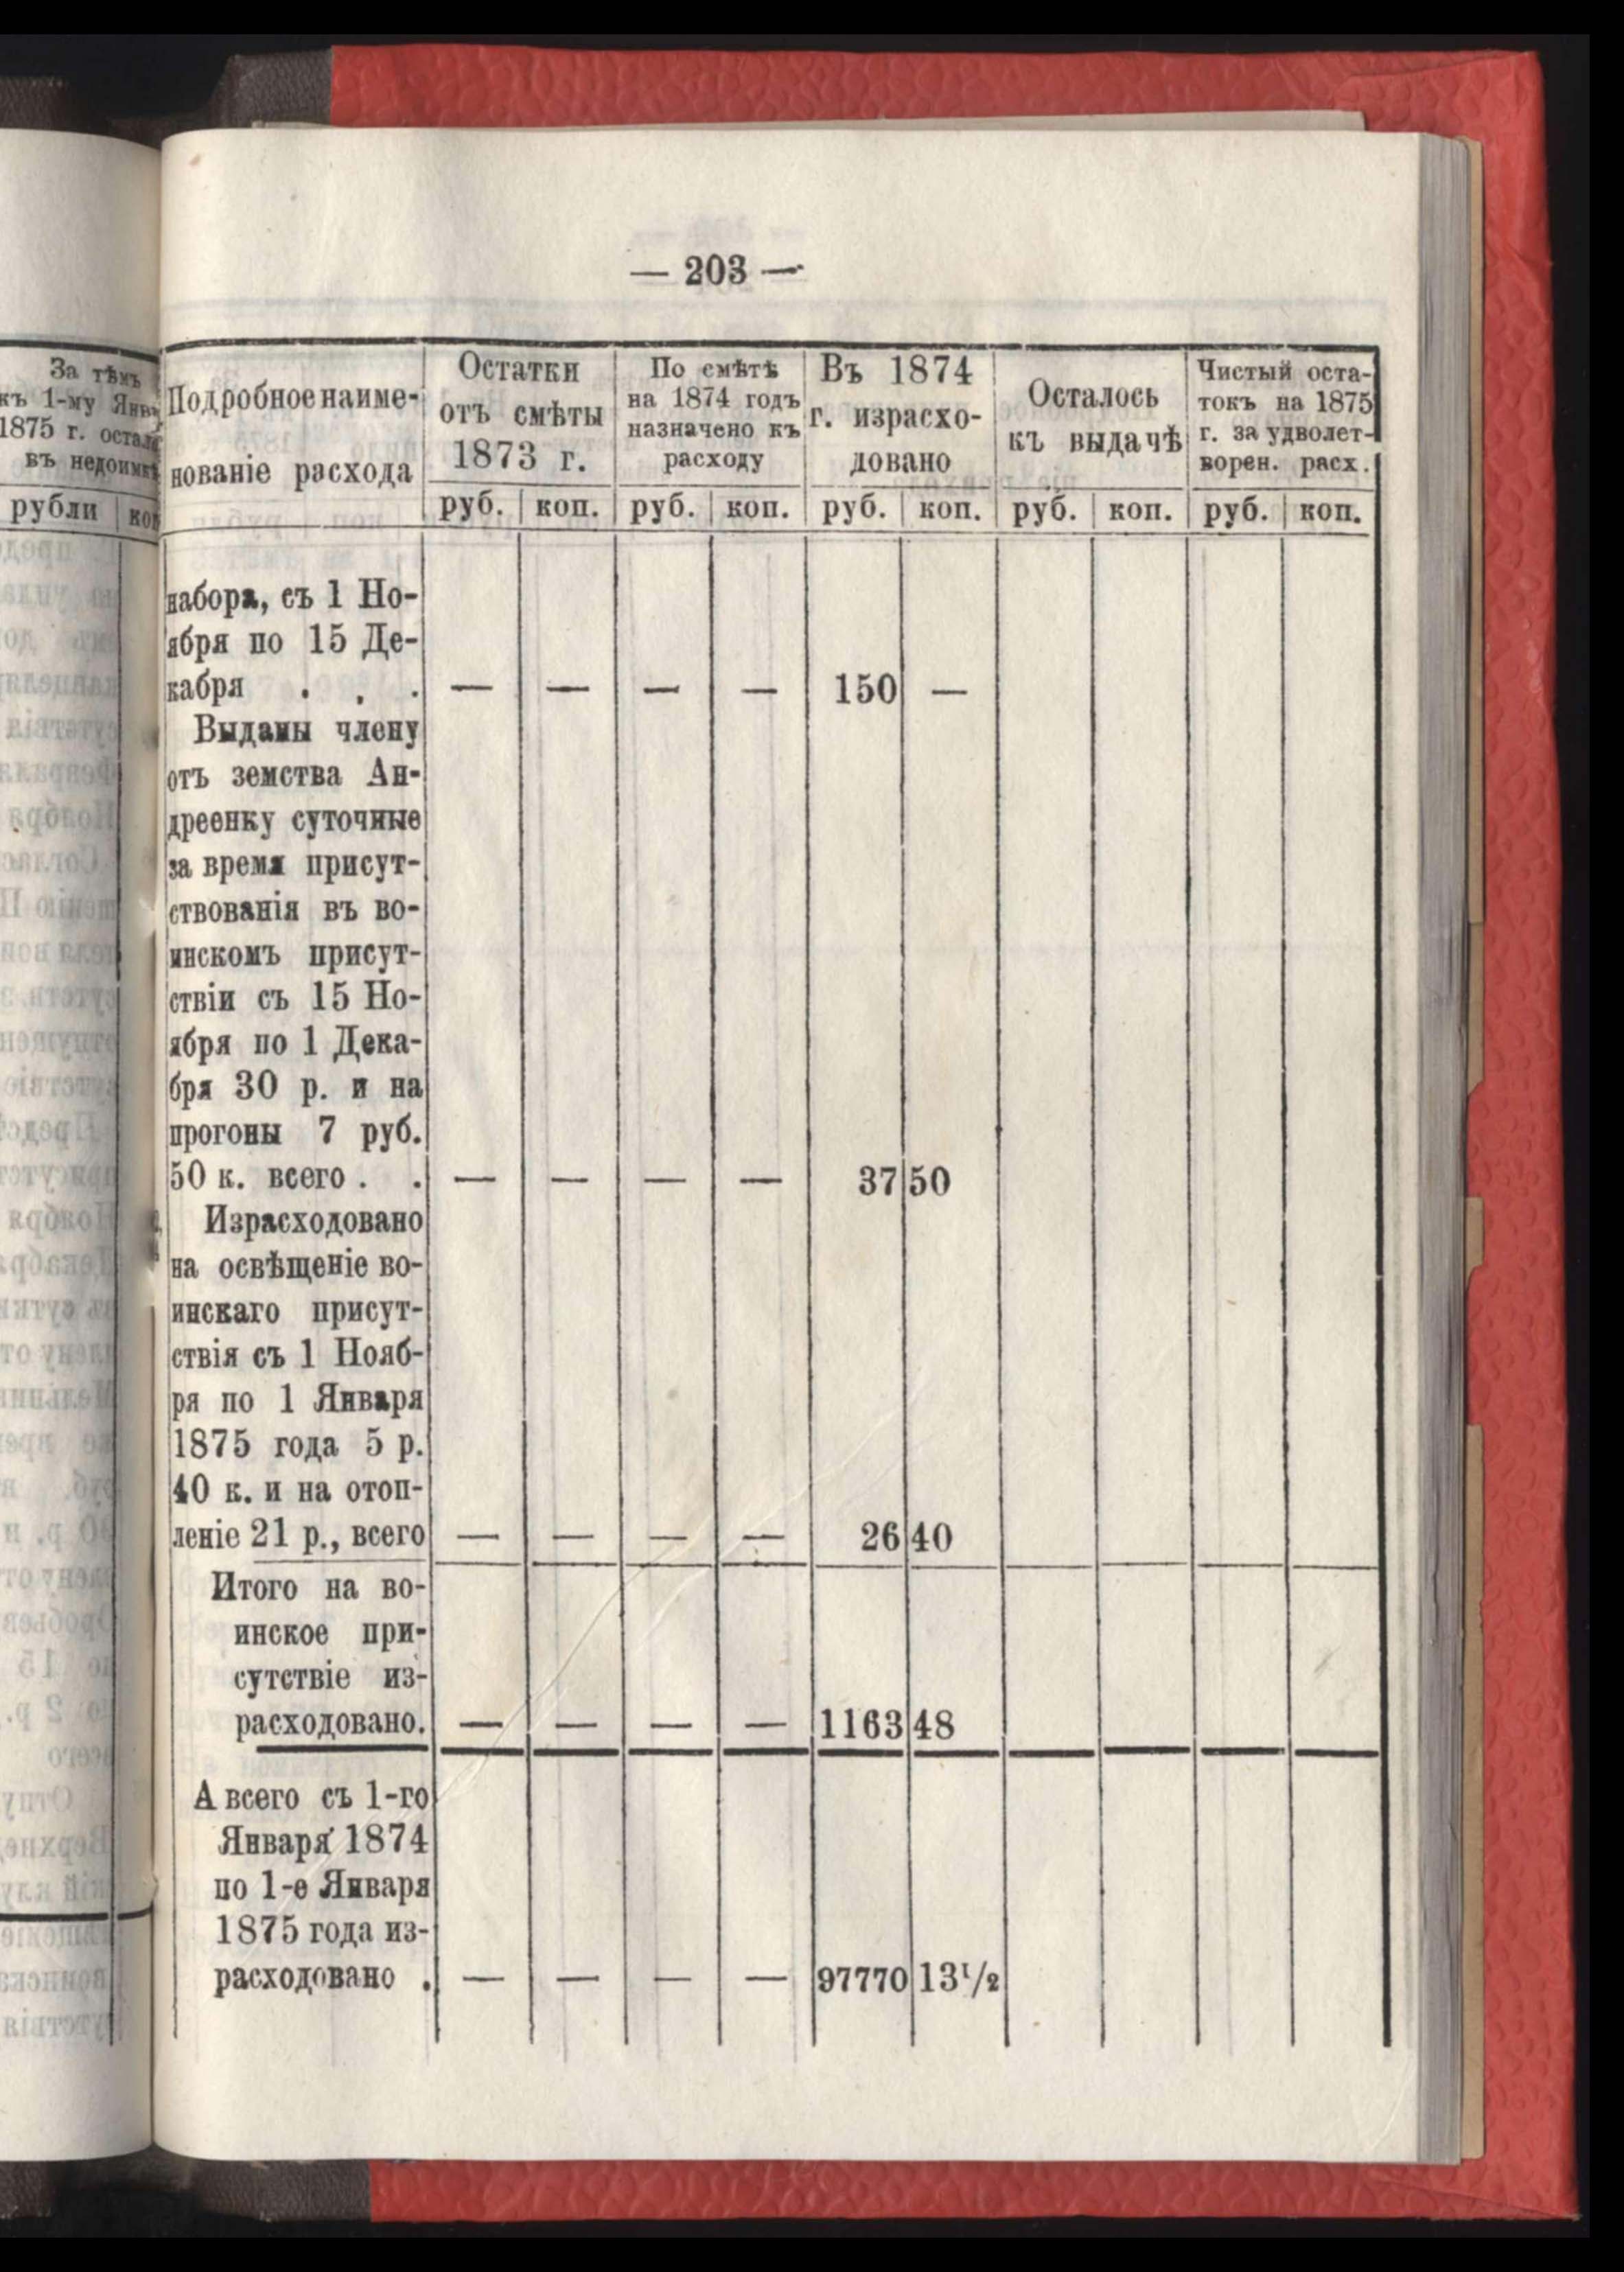 — 203 —
За тѣмъ
къ 1-му
1875 г.
въ
рубли
Подробное наиме-
нованіе расхода
Остатки
отъ смѣты
1873 г.
По смѣтѣ
на 1874 годъ
назначено къ
расходу
Въ 1874
г. израсхо-
довано
Осталось
къ выдачѣ
Чистый оста-
токъ на 1875
г. за удволет-
ворен. расх.
руб. коп. руб. коп. руб. коп. руб. коп. руб. коп.
набора, съ 1 Но-
ября по 15 Де-
кабря . . . — — — — 150 —
Выданы члену
отъ земства Ан-
дреенку суточные
за время присут-
ствованія въ во-
инскомъ присут-
ствіи съ 15 Но-
ября по 1 Дека-
бря 30 р. и на
прогоны 7 руб.
50 к. всего . . — — — — 37 50
Израсходовано
на освѣщеніе во-
инскаго присут-
ствія съ 1 Нояб-
ря по 1 Января
1875 года 5 р.
40 к. и на отоп-
леніе 21 р., всего — — — — 26 40
Итого на во-
инское при-
сутствіе из-
расходовано. — — — — 1163 48
А всего съ 1-го
Января 1874
по 1-е Января
1875 года из-
расходовано . — — — — 97770 13¹/₂